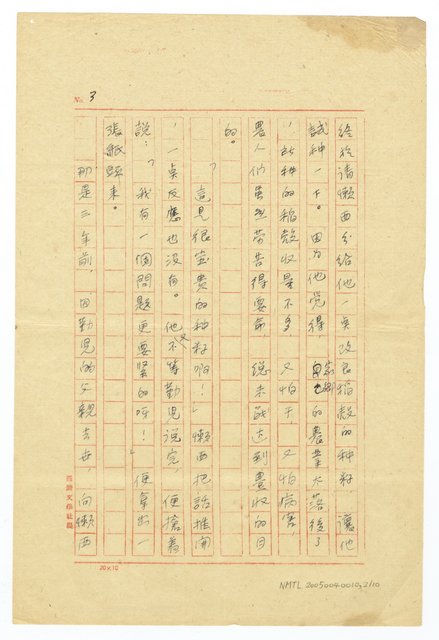 No. 3
終於請懶西分給他一點改良稻穀的種籽讓他
試種一下。因為他覺得,家鄉的農業太落後了
,所種的稻穀收量不多,又怕干,又怕病害,
農人們虽然劳苦得要命,總未能达到豊收的目
的。
「這是很宝貴的种籽啊!」懶西把話推開
,一点反應也沒有。他又不等勤児说完,便搶着
說:「我有一個問題更要緊的呀!」便拿出一
張紙頭來。
那是三年前,因勤児的父親去世,向懶西
20×10
NMTL 20050040010,3/10